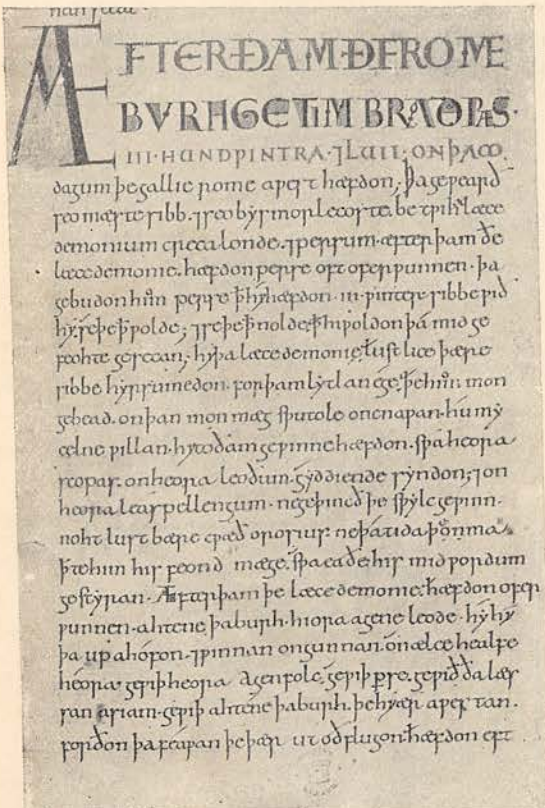 ÆFTER ÐAM ÐE ROME
BURH GETIMBRAD ǷÆS·
III·HUND ǷINTRA·⁊LUII·ON ÞAM
dagum þe gallie rome aƿest hæfdon; þa geƿearð
seo mæste sibb. ⁊seo býsmorlecoste. betƿih læce
demonium creca londe. ⁊ persum. æfter þam ðe
læcedemonie. hæfdon perse oft oferƿunnen. þa
gebudon him perse ꝥ hý hæfdon .iii. ƿinter sibbe ƿið
hý. se þe ꝥ ƿolde; ⁊se þe ꝥ nolde. ꝥ hi ƿoldon þa mid ge
feohte gesecan; hý þa læcedemonie. lustlice þære
sibbe hýrsumedon. for þam lýtlan ege. þe him mon
gebead. on þan mon mæg sƿutole oncnaƿan. hu mý
celne ƿillan. hy to ðam geƿinne hæfdon. sƿa heora
scopas. on heora leoðum. gýddiende sýndon; ⁊ on
heora leasspellengum. ne geþincð þe sƿýlc geƿinn.
noht lustbære cƿæð orosius ne þa tida þon ma.
ꝥte him his feond mæge. sƿa eaðe his mid ƿordum
gestýran. Æfter þam þe læcedemonie. hæfdon ofer
ƿunnen. ahtene þa burh. hiora agene leode. hý hý
þa up ahofon. ⁊ƿinnan ongunnan. on ælce healfe
heora. ge ƿiþ heora agen folc. ge ƿiþ perse. ge ƿið ða læs
san asiam. ge ƿiþ ahtene þa burh. þe hy ær aƿestan.
forðon þa feaƿan þe þær ut oðflugon. hæfdon eft